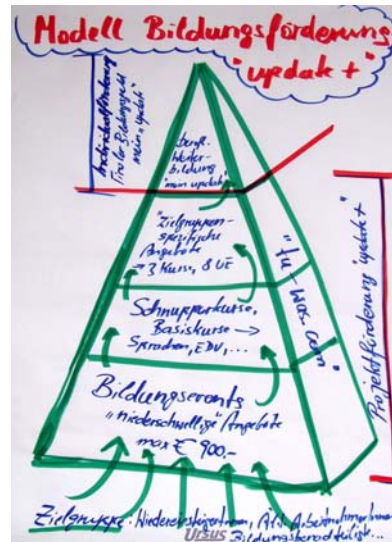 Modell Bildungsförderung
"update +"
Individualförderung
Tiroler Bildungsgeld
mein "update"
berufl.
Weiter-
bildung
"mein update"
"Zielgruppen-
spezifische
Angebote
→ 3 Kurse, 8 UE
Schnupperkurse,
Basiskurse →
Sprachen, EDV, ...
Bildungsevents
"niederschwellige" Angebote
max € 900,-
"tu-was.com"
Projektförderung "update +"
Zielgruppe: WiedereinsteigerInnen, ArbeitnehmerInnen
Bildungsbenachteiligte...
Ursus